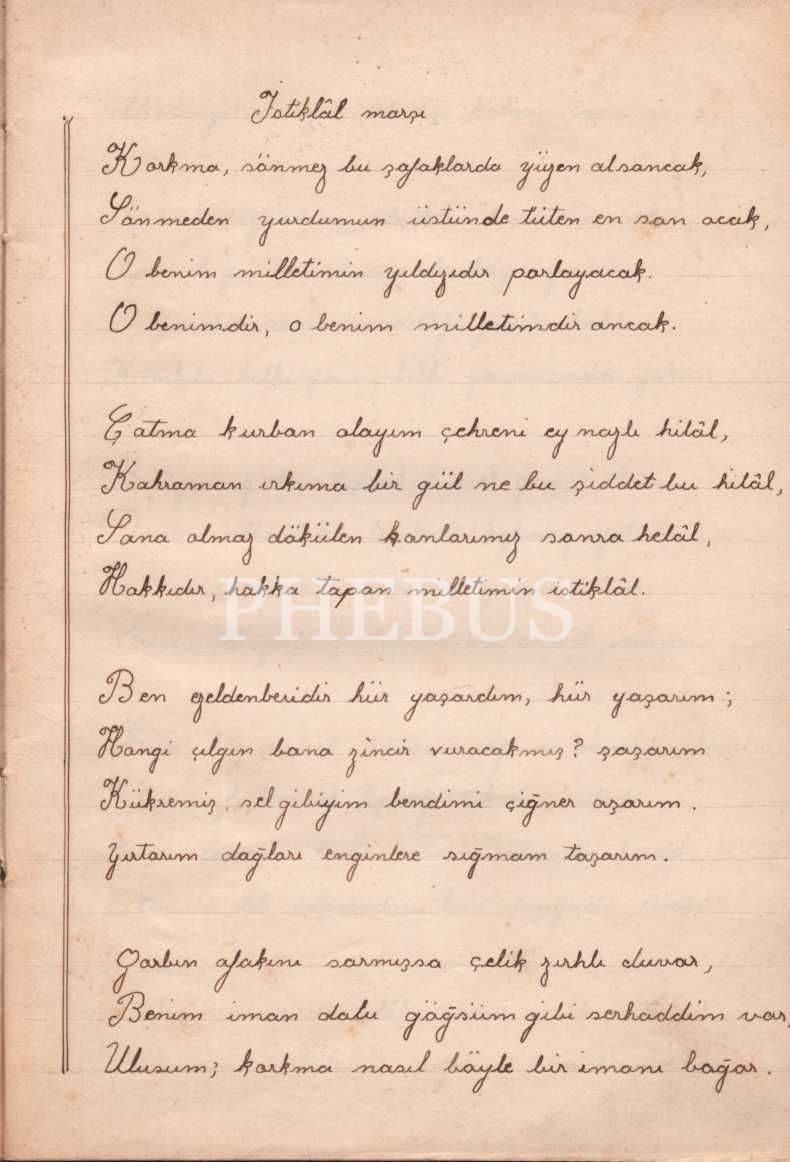 İstiklâl marşı
Korkma, sönmez bu şafaklarda yüzen alsancak,
Sönmeden yurdumun üstünde tüten en son ocak,
O benim milletimin yıldızıdır parlayacak.
O benimdir, o benim milletimdir ancak.
Çatma kurban olayım çehreni ey nazlı hilâl,
Kahraman ırkıma bir gül ne bu şiddet bu hilâl,
Sana olmaz dökülen kanlarımız sonra helâl,
Hakkıdır, hakka tapan milletimin istiklâl.
PHEBUS
Ben ezeldenberidir hür yaşardım, hür yaşarım;
Hangi çılgın bana zincir vuracakmış? şaşarım
Kükremiş sel gibiyim bendimi çiğner aşarım.
Yırtarım dağları enginlere sığmam taşarım.
Garbın afakını sarmışsa çelik zırhlı duvar,
Benim iman dolu göğsüm gibi serhaddim var,
Ulusum; korkma nasıl böyle bir imanı boğar.